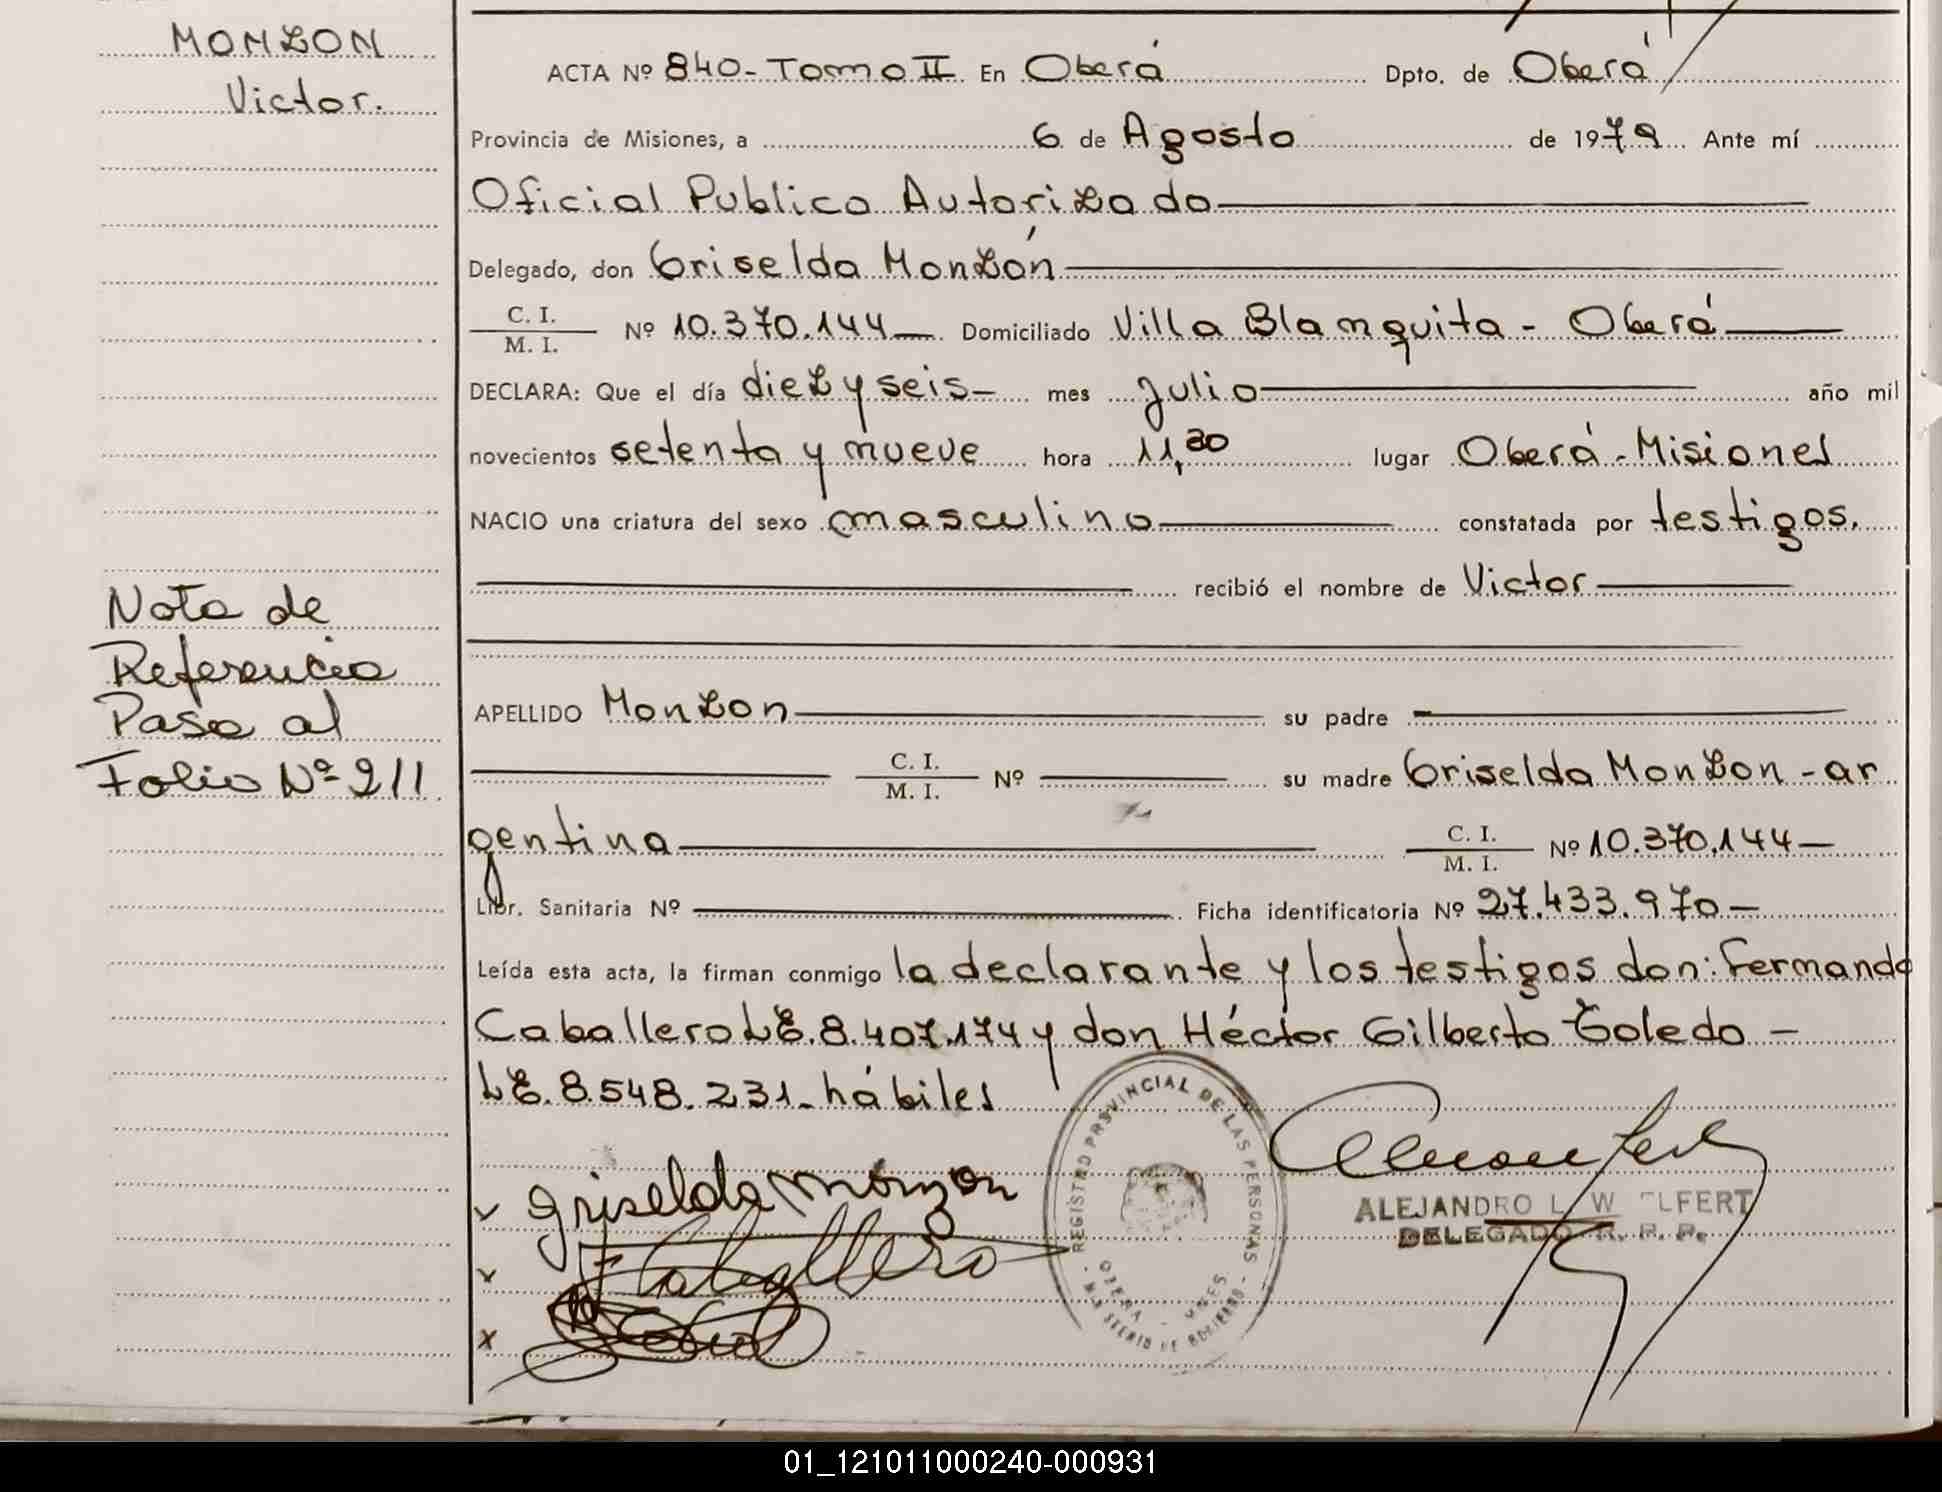 MONZON
Victor.
ACTA Nº 840- Tomo II En Oberá Dpto. de Oberá
Provincia de Misiones, a 6 de Agosto de 1979 Ante mí
Oficial Publico Autorizado
Delegado, don Griselda Monzón
C. I.
M. I. Nº 10.370.144 Domiciliado Villa Blanquita - Oberá
DECLARA: Que el día diez y seis mes Julio año mil
novecientos setenta y nueve hora 11,30 lugar Oberá - Misiones
NACIO una criatura del sexo masculino constatada por testigos.
recibió el nombre de Victor
APELLIDO Monzon su padre
C. I.
M. I. Nº su madre Griselda Monzon - ar
gentina C. I.
M. I. Nº 10.370.144
Libr. Sanitaria Nº Ficha identificatoria Nº 27.433.970
Leída esta acta, la firman conmigo la declarante y los testigos don: Fernando
Caballero LE. 8.407.174 y don Héctor Gilberto Toledo -
LE. 8.548.231- hábiles
Nota de
Referencia
Pasa al
Folio Nº 211
Griselda monzon
F Caballero
REGISTRO PROVINCIAL DE LAS PERSONAS
OBERA - MNES.
ALEJANDRO L. W
DELEGADO R. P. P.
01_121011000240-000931